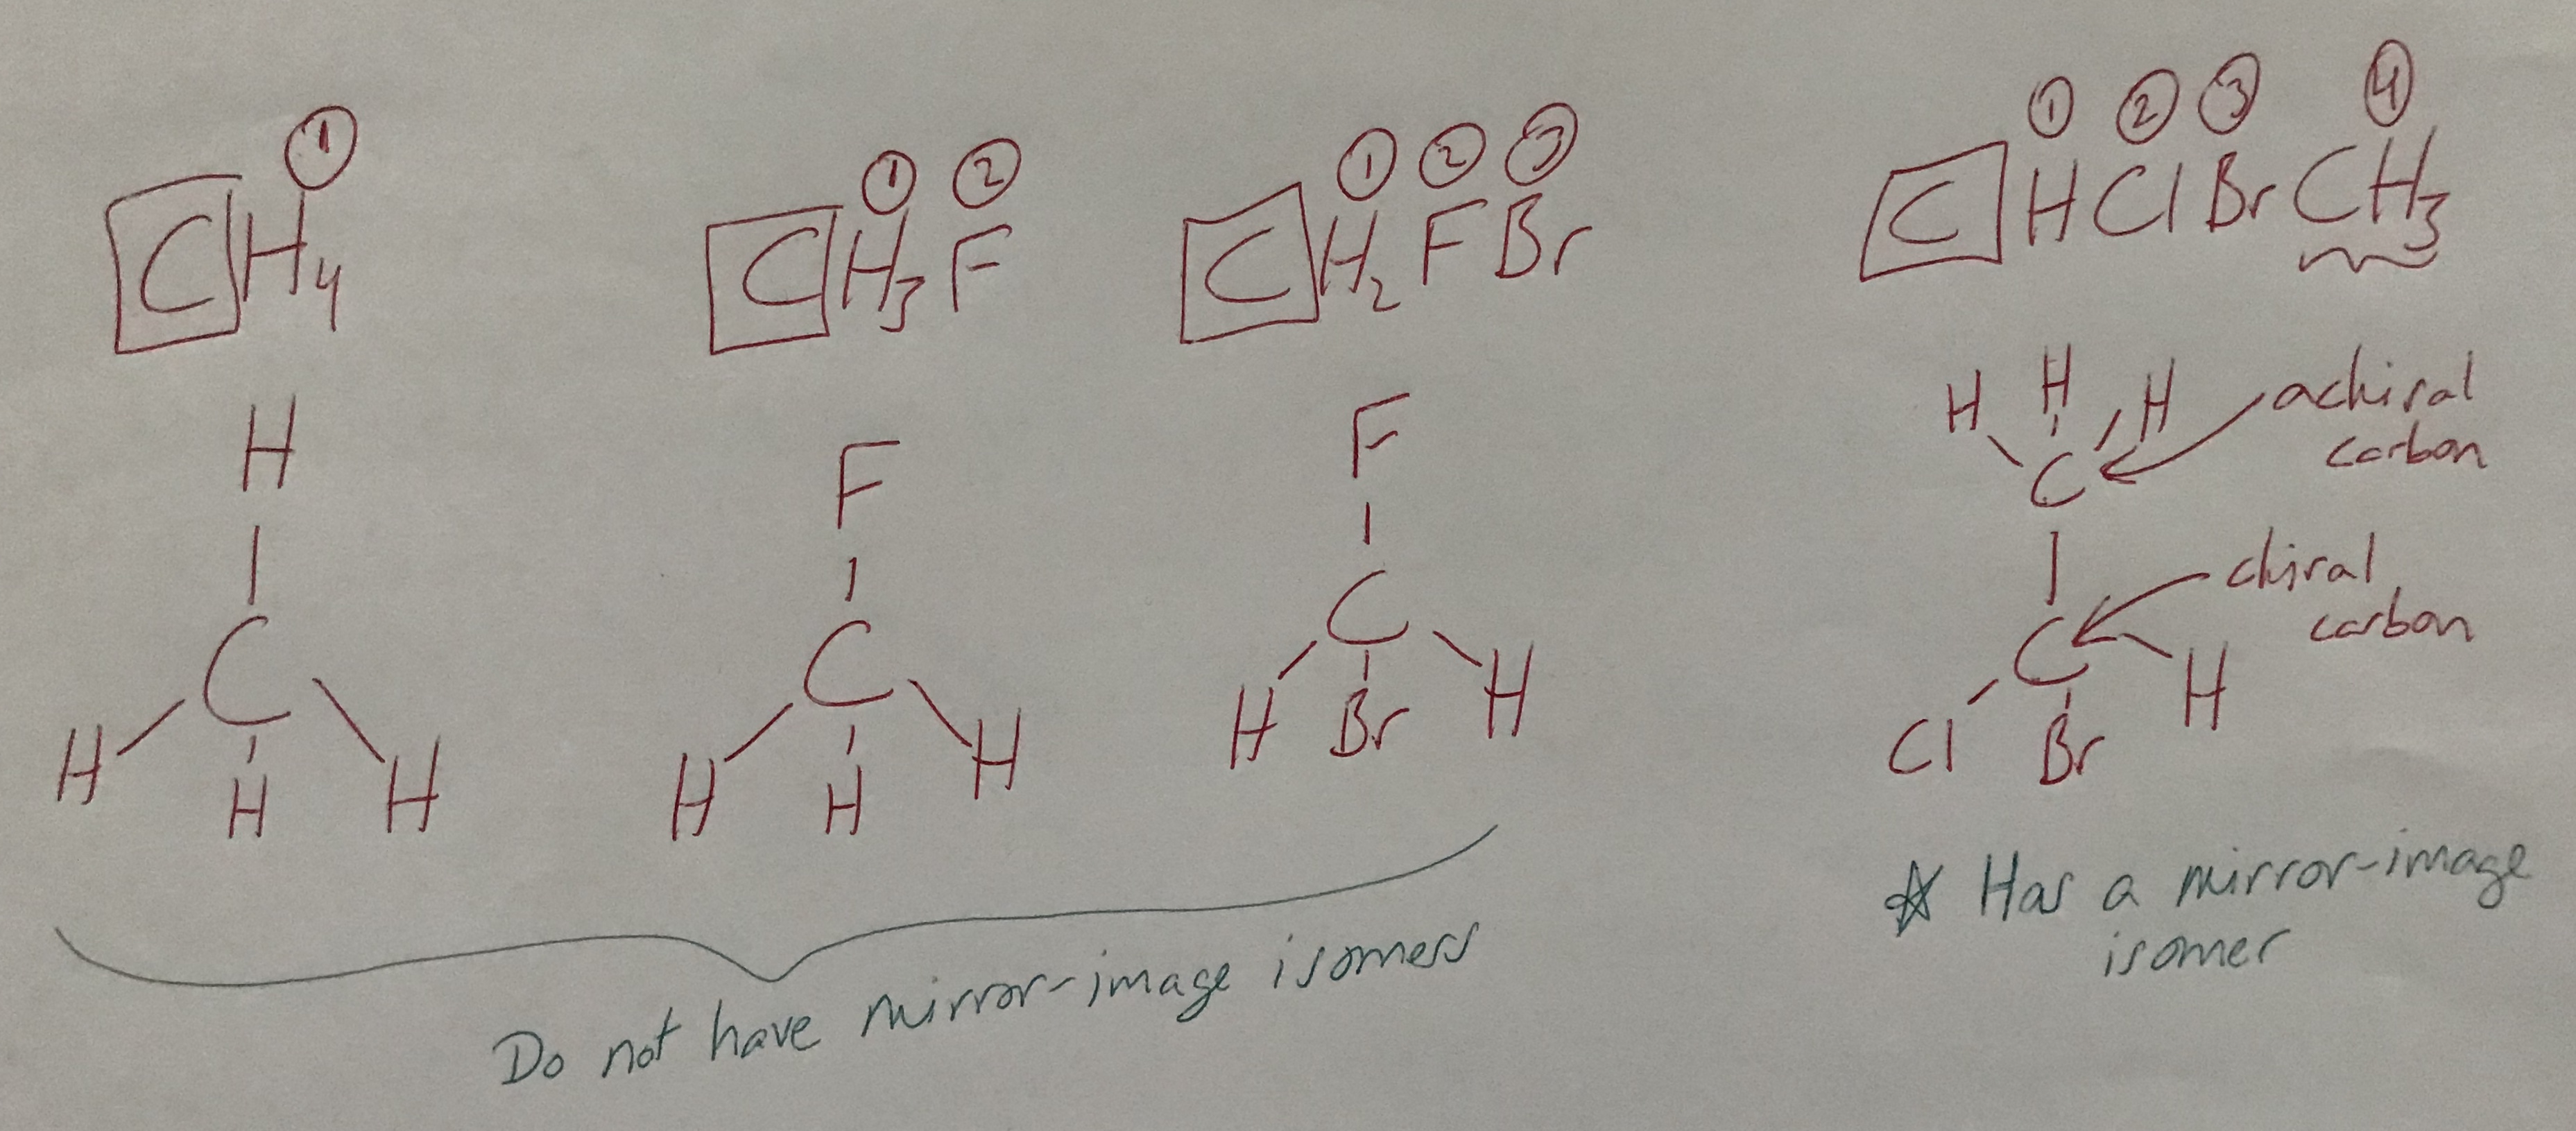 ① ① ② ① ② ③ ① ② ③ ④
CH₄ CH₃F CH₂FBr CHClBrCH₃
H F F H H H achiral
carbon
C
C C C chiral
carbon
C
H H H H H H H Br H Cl Br H
Do not have mirror-image isomers
☆ Has a mirror-image
isomer